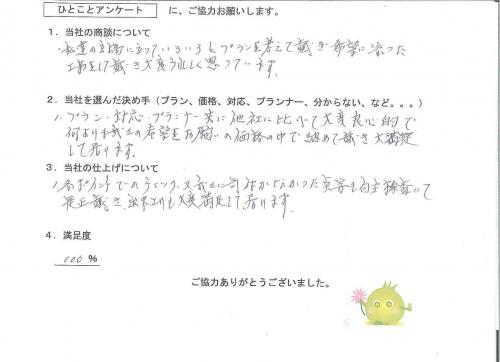 ひとことアンケート に、ご協力お願いします。
1．当社の商談について
私達の立場に立っていろいろとプランを考えて戴き希望に添った
工事をして戴き大変うれしく思っています。
2．当社を選んだ決め手（プラン、価格、対応、プランナー、分からない、など。。。）
プラン・対応・プランナー共に他社に比べて大変良心的で
何よりも私達の希望をお願いの価格の中で納めて戴き大満足
して居ります。
3．当社の仕上げについて
各ポイントでのチェック、
検査にて
是正戴き、出来上りも大変満足して居ります。
4．満足度
100 %
ご協力ありがとうございました。